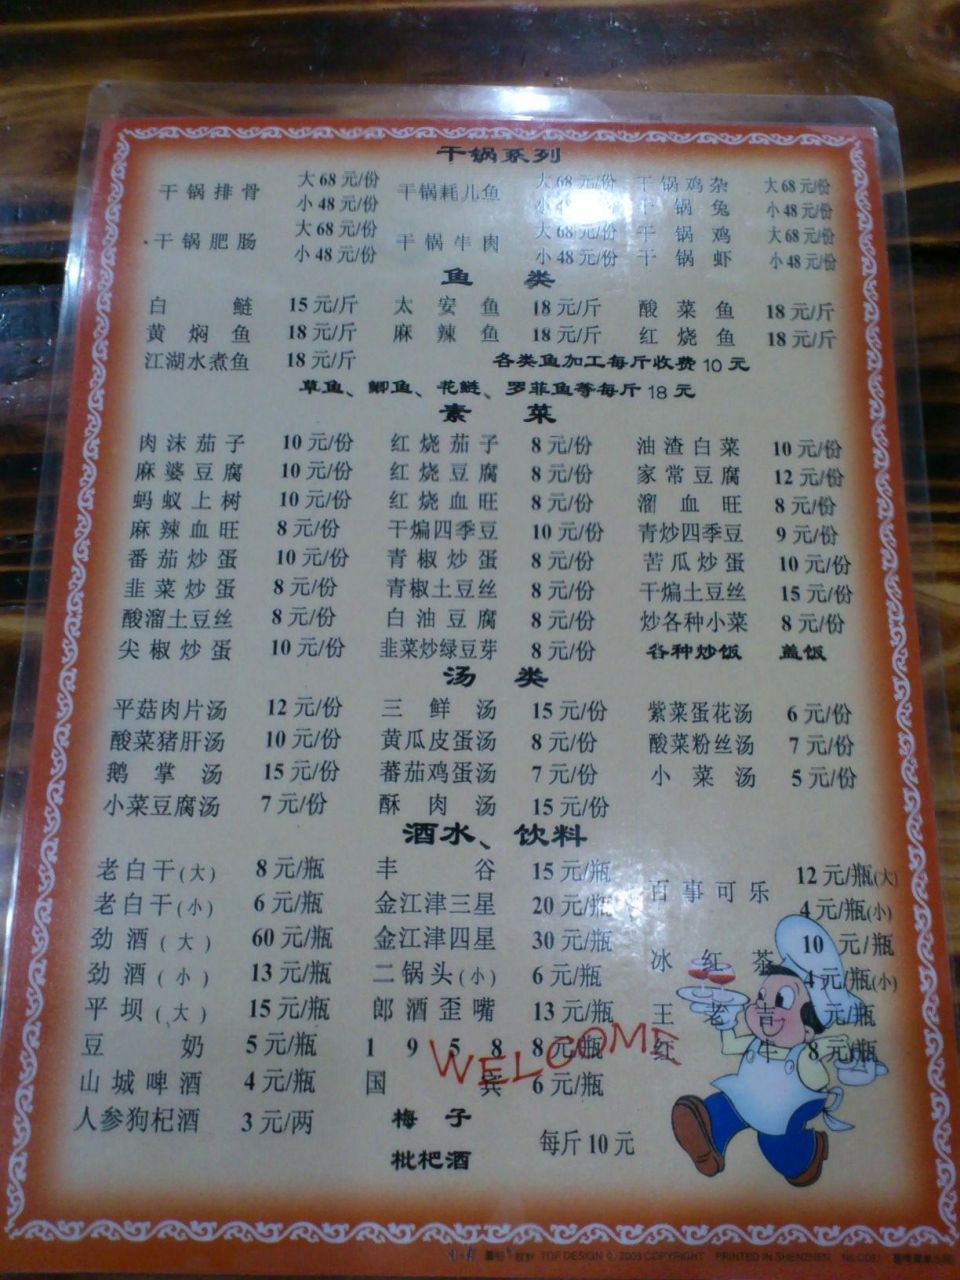 干锅系列
干锅排骨 大68元/份 干锅耗儿鱼 大68元/份 干锅鸡杂 大68元/份
小48元/份 干锅兔 小48元/份
干锅肥肠 大68元/份 干锅牛肉 大68元/份 干锅鸡 大68元/份
小48元/份 小48元/份 干锅虾 小48元/份
鱼类
白鲢 15元/斤 太安鱼 18元/斤 酸菜鱼 18元/斤
黄焖鱼 18元/斤 麻辣鱼 18元/斤 红烧鱼 18元/斤
江湖水煮鱼 18元/斤 各类鱼加工每斤收费10元
草鱼、鲫鱼、花鲢、罗菲鱼等每斤18元
素菜
肉沫茄子 10元/份 红烧茄子 8元/份 油渣白菜 10元/份
麻婆豆腐 10元/份 红烧豆腐 8元/份 家常豆腐 12元/份
蚂蚁上树 10元/份 红烧血旺 8元/份 溜血旺 8元/份
麻辣血旺 8元/份 干煸四季豆 10元/份 青炒四季豆 9元/份
番茄炒蛋 10元/份 青椒炒蛋 8元/份 苦瓜炒蛋 10元/份
韭菜炒蛋 8元/份 青椒土豆丝 8元/份 干煸土豆丝 15元/份
酸溜土豆丝 8元/份 白油豆腐 8元/份 炒各种小菜 8元/份
尖椒炒蛋 10元/份 韭菜炒绿豆芽 8元/份 各种炒饭 盖饭
汤类
平菇肉片汤 12元/份 三鲜汤 15元/份 紫菜蛋花汤 6元/份
酸菜猪肝汤 10元/份 黄瓜皮蛋汤 8元/份 酸菜粉丝汤 7元/份
鹅掌汤 15元/份 蕃茄鸡蛋汤 7元/份 小菜汤 5元/份
小菜豆腐汤 7元/份 酥肉汤 15元/份
酒水、饮料
老白干(大) 8元/瓶 丰谷 15元/瓶 百事可乐 12元/瓶(大)
老白干(小) 6元/瓶 金江津三星 20元/瓶 4元/瓶(小)
劲酒(大) 60元/瓶 金江津四星 30元/瓶 冰红茶 10元/瓶
劲酒(小) 13元/瓶 二锅头(小) 6元/瓶 4元/瓶(小)
平坝(大) 15元/瓶 郎酒歪嘴 13元/瓶 王老吉 元/瓶
豆奶 5元/瓶 1958 8元/瓶 红牛 8元/瓶
山城啤酒 4元/瓶 国宾 6元/瓶
WELCOME
人参狗杞酒 3元/两 梅子
枇杷酒 每斤10元
TOP DESIGN © 2003 COPYRIGHT PRINTED IN SHENZHEN